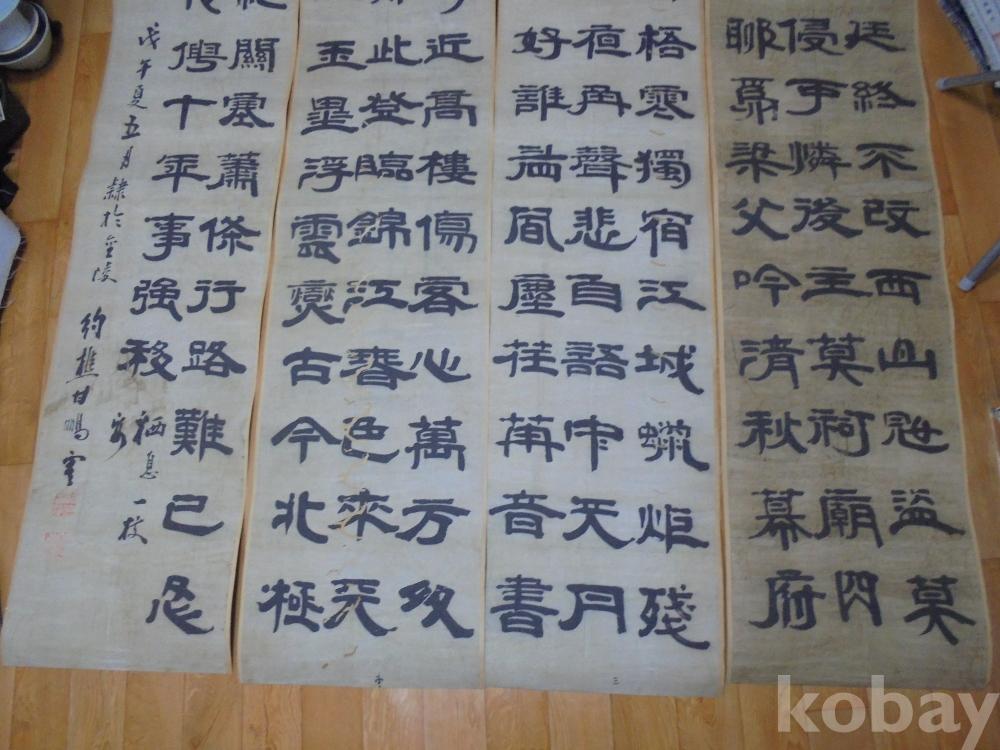 廷終不改西山寇盜莫
侵可憐後主還祠廟日
聊爲梁父吟清秋幕府
梧寒獨宿江城蠟炬殘
夜角聲悲自語中天月
好誰看風塵荏苒音書
近高樓傷客心萬方多
此登臨錦江春色來天
玉壘浮雲變古今北極
關塞蕭條行路難已忍
俜十年事強移
栖息一枝
安
戊午夏五月隸於金陵
約樵甘鵬雲
三
kobay